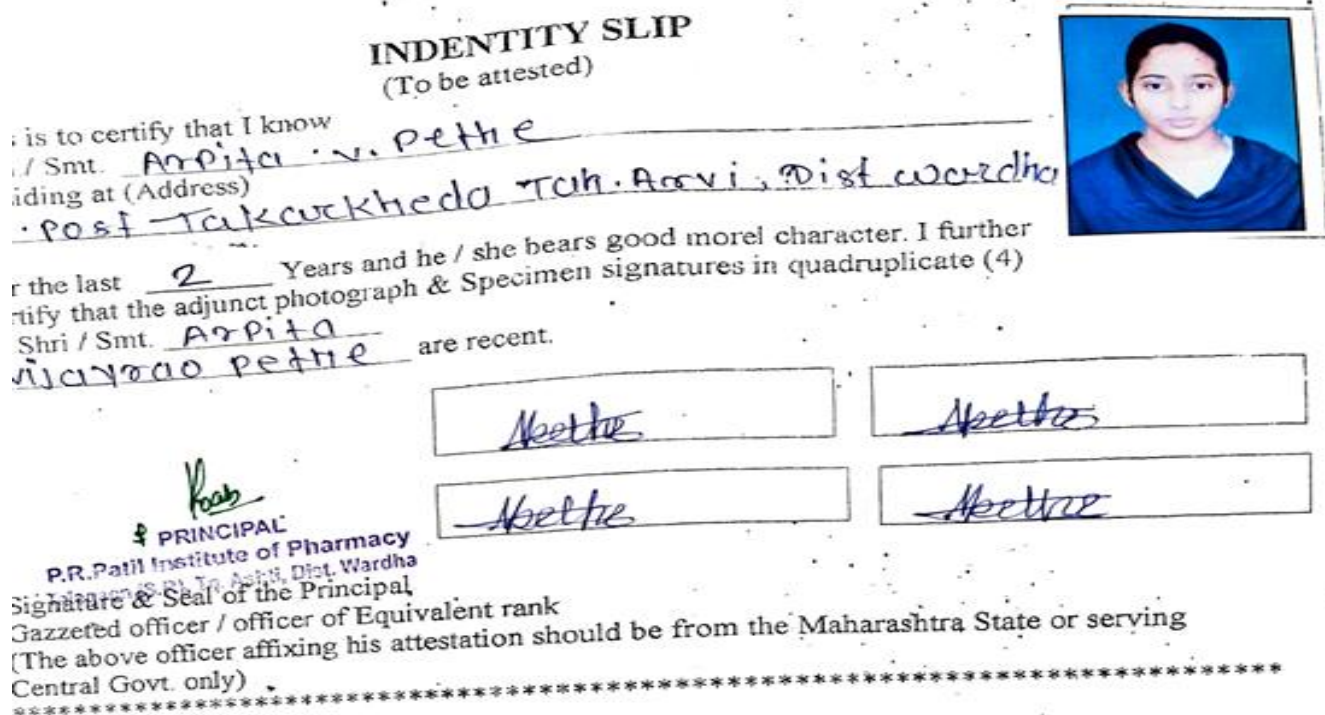 INDENTITY SLIP
(To be attested)
is is to certify that I know
/ Smt. Arpita . v. Pethe
iding at (Address)
. Post Takarkheda Tah. Arvi, Dist wardha
r the last 2 Years and he / she bears good morel character. I further
rtify that the adjunct photograph & Specimen signatures in quadruplicate (4)
Shri / Smt. Arpita
vijayrao Pethe are recent.
Apethe Apethe
Apethe Apethe
PRINCIPAL
P.R.Patil Institute of Pharmacy
Talegaon (S.P), Tq. Ashti, Dist. Wardha
Signature & Seal of the Principal
Gazzefed officer / officer of Equivalent rank
(The above officer affixing his attestation should be from the Maharashtra State or serving
Central Govt. only)